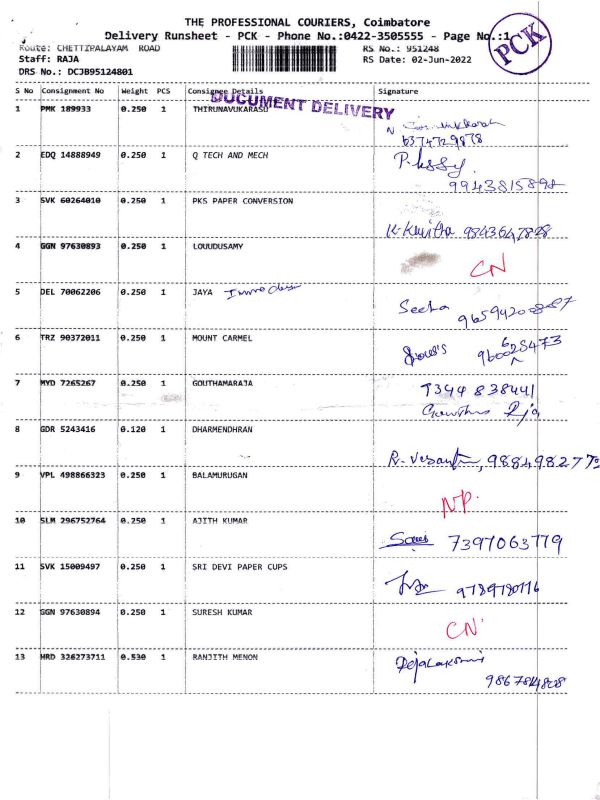 THE PROFESSIONAL COURIERS, Coimbatore
Delivery Runsheet - PCK - Phone No.:0422-3505555 - Page No.:1
PCK
Route: CHETTIPALAYAM ROAD
RS No.: 951248
Staff: RAJA
RS Date: 02-Jun-2022
DRS No.: DCJB95124801
S No Consignment No Weight PCS Consignee Details Signature
DOCUMENT DELIVERY
1 PMK 189933 0.250 1 THIRUNAVUKARASU
6374729878
2 EDQ 14888949 0.250 1 Q TECH AND MECH
9943815898
3 SVK 60264010 0.250 1 PKS PAPER CONVERSION
K. Kavitha 9843647828
4 GGN 97630893 0.250 1 LOUUDUSAMY
CN
5 DEL 70062206 0.250 1 JAYA
Seetha
6 TRZ 90372011 0.250 1 MOUNT CARMEL
7 MYD 7265267 0.250 1 GOUTHAMARAJA
7344 838441
8 GDR 5243416 0.120 1 DHARMENDHRAN
9 VPL 498866323 0.250 1 BALAMURUGAN
NP.
10 SLM 296752764 0.250 1 AJITH KUMAR
7397063779
11 SVK 15009497 0.250 1 SRI DEVI PAPER CUPS
9789780776
12 GGN 97630894 0.250 1 SURESH KUMAR
CN
13 HRD 326273711 0.530 1 RANJITH MENON